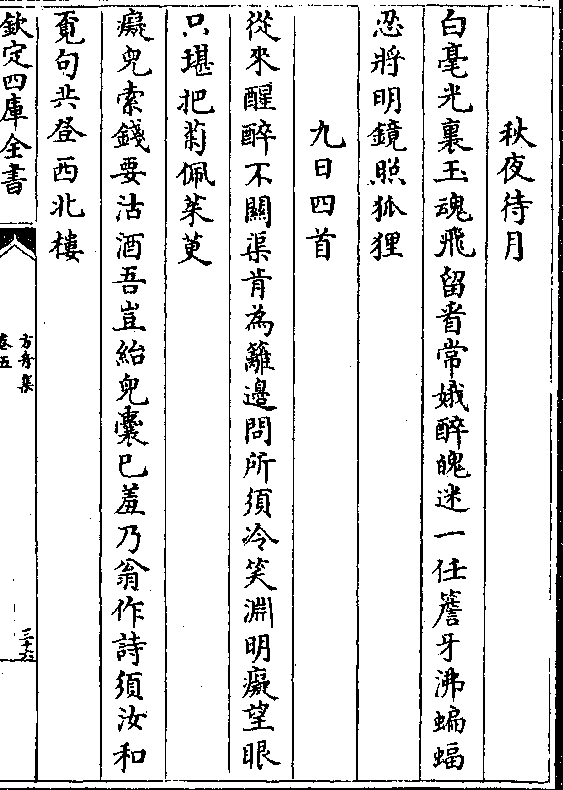 秋夜待月
白毫光裏玉魂飛留看常娥醉魄迷一任簷牙沸蝙蝠
忍將明鏡照狐狸
九日四首
從來醒醉不關渠肯為籬邊問所須冷笑淵明癡望眼
只堪把菊佩茱萸
癡兒索錢要沽酒吾豈紿兒囊已羞乃翁作詩須汝和
覓句共登西北樓
欽定四庫全書
方舟集
卷五
三十六